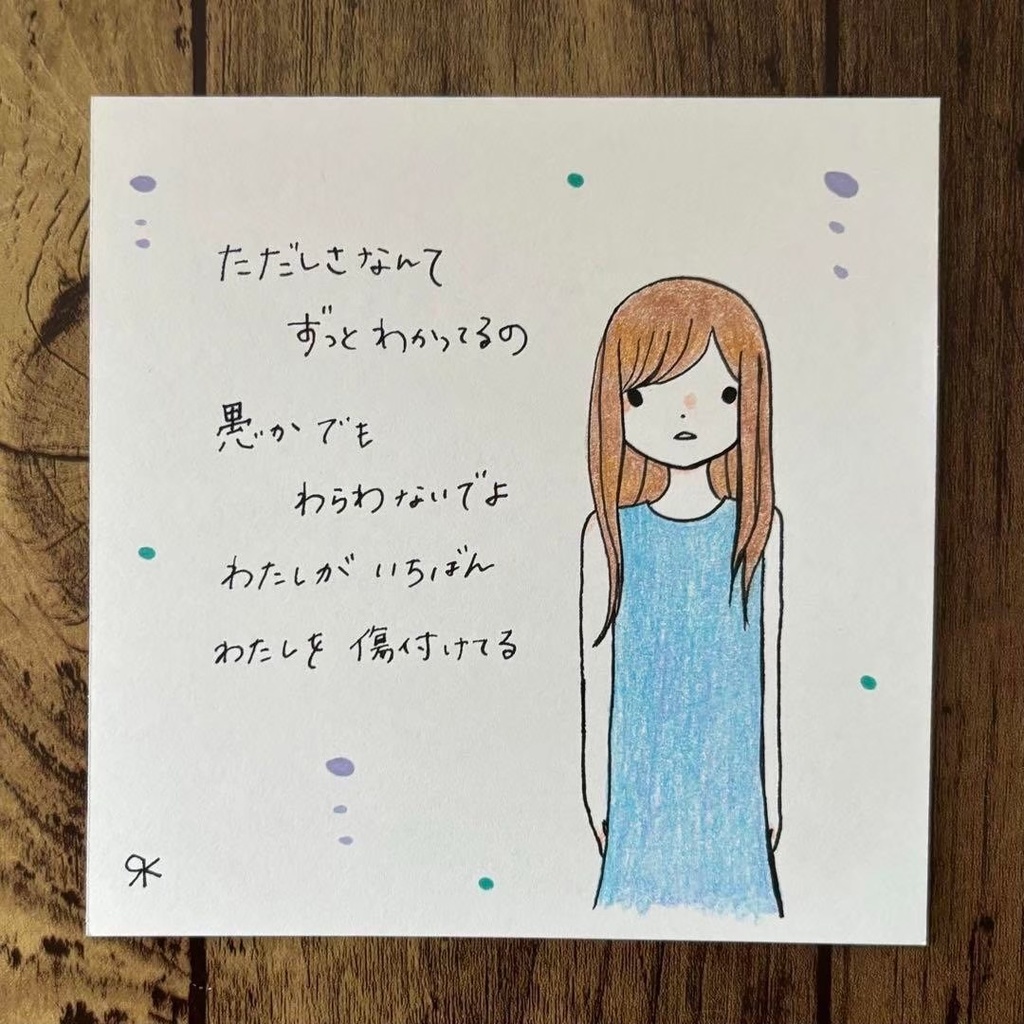 ただしさなんて
ずっとわかってるの
愚かでも
わらわないでよ
わたしがいちばん
わたしを傷付けてる